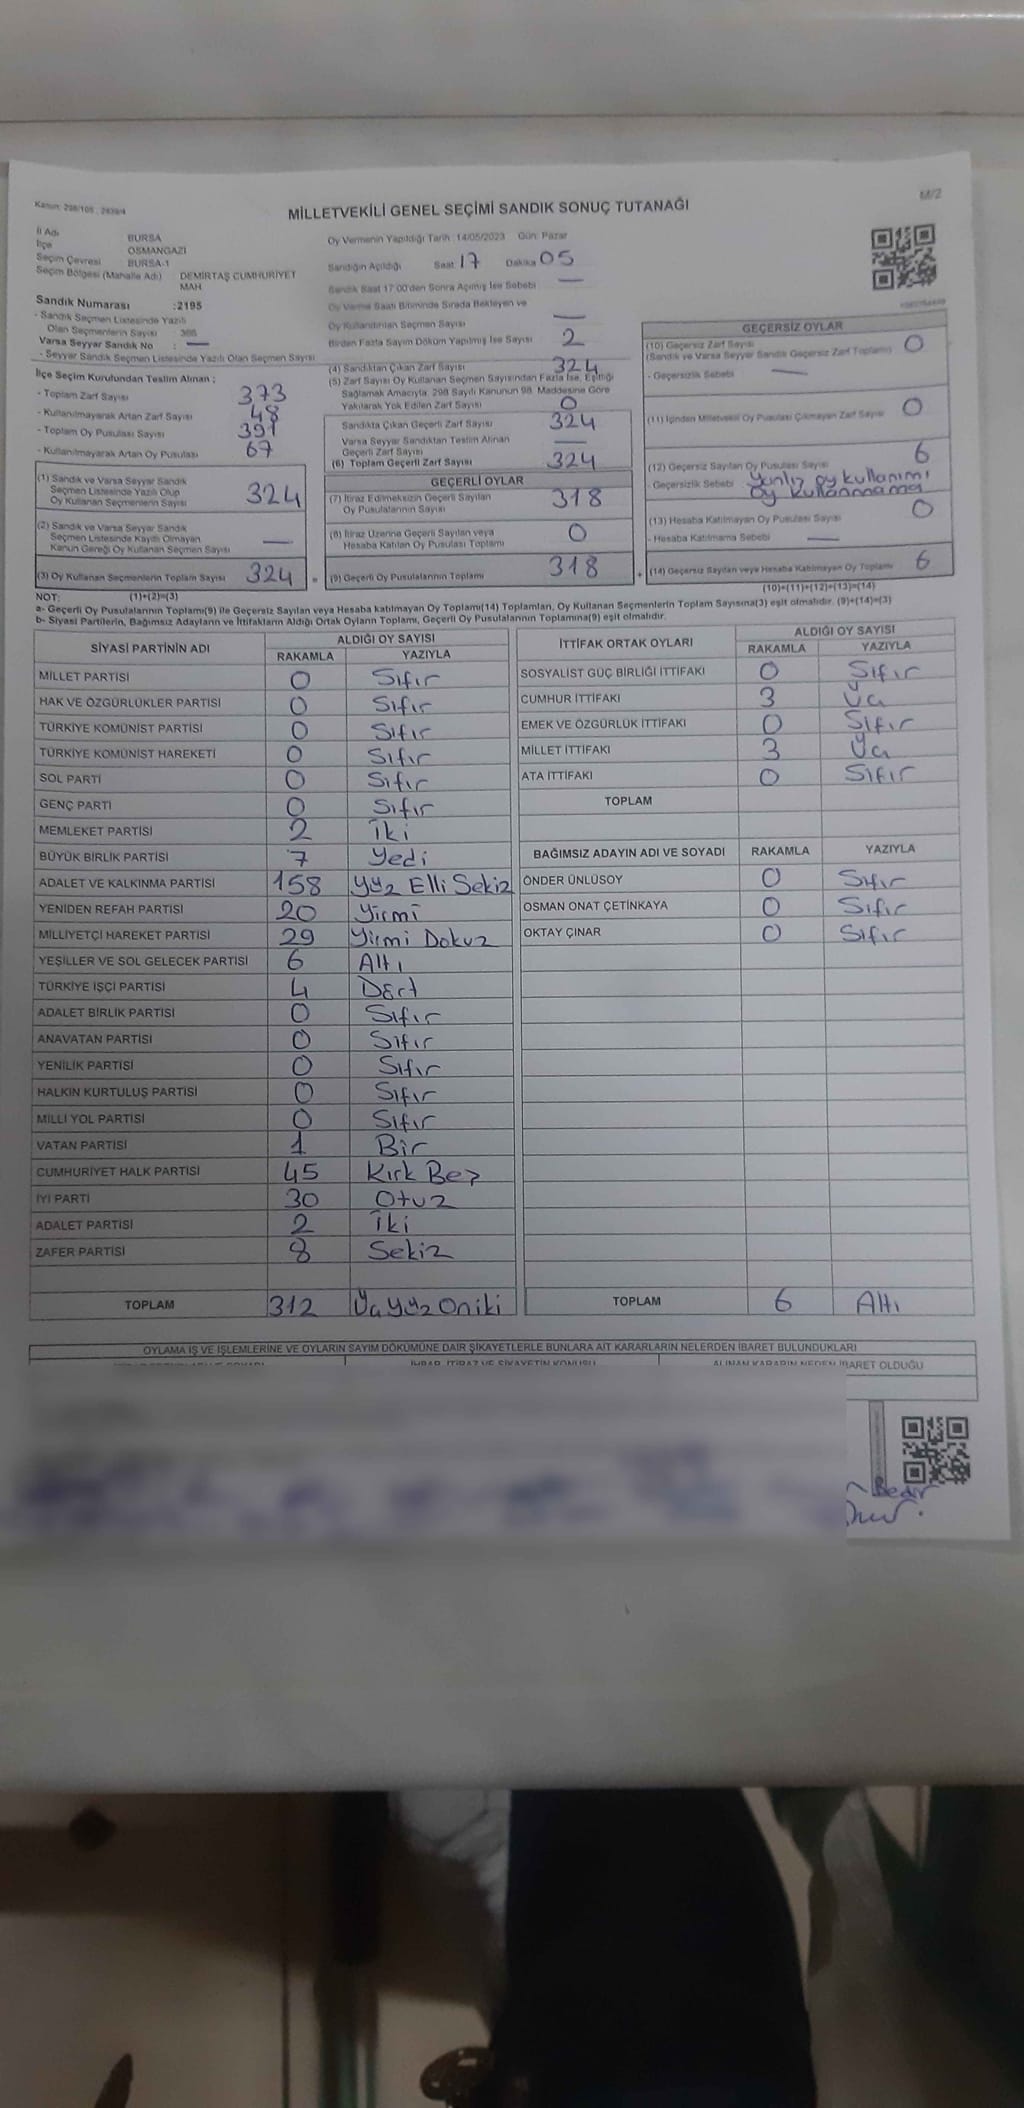 Kanun: 298/105 , 2839/4
M/2
MİLLETVEKİLİ GENEL SEÇİMİ SANDIK SONUÇ TUTANAĞI
İl Adı BURSA
İlçe OSMANGAZİ
Seçim Çevresi BURSA-1
Seçim Bölgesi (Mahalle Adı) DEMİRTAŞ CUMHURİYET MAH
Sandık Numarası :2195
- Sandık Seçmen Listesinde Yazılı
Olan Seçmenlerin Sayısı :
Varsa Seyyar Sandık No : —
- Seyyar Sandık Seçmen Listesinde Yazılı Olan Seçmen Sayısı
İlçe Seçim Kurulundan Teslim Alınan :
- Toplam Zarf Sayısı 373
- Kullanılmayarak Artan Zarf Sayısı 48
- Toplam Oy Pusulası Sayısı 391
- Kullanılmayarak Artan Oy Pusulası 67
(1) Sandık ve Varsa Seyyar Sandık
Seçmen Listesinde Yazılı Olup
Oy Kullanan Seçmenlerin Sayısı 324
(2) Sandık ve Varsa Seyyar Sandık
Seçmen Listesinde Kayıtlı Olmayan
Kanun Gereği Oy Kullanan Seçmen Sayısı —
(3) Oy Kullanan Seçmenlerin Toplam Sayısı 324 =
Oy Vermenin Yapıldığı Tarih :14/05/2023 Gün: Pazar
Sandığın Açıldığı Saat 17 Dakika 05
Sandık Saat 17:00'den Sonra Açılmış İse Sebebi —
Oy Verme Saati Bitiminde Sırada Bekleyen ve
Oy Kullandırılan Seçmen Sayısı —
Birden Fazla Sayım Döküm Yapılmış İse Sayısı 2
(4) Sandıktan Çıkan Zarf Sayısı 324
(5) Zarf Sayısı Oy Kullanan Seçmen Sayısından Fazla İse, Eşitliği
Sağlamak Amacıyla, 298 Sayılı Kanunun 98. Maddesine Göre
Yakılarak Yok Edilen Zarf Sayısı 0
Sandıkta Çıkan Geçerli Zarf Sayısı 324
Varsa Seyyar Sandıktan Teslim Alınan
Geçerli Zarf Sayısı —
(6) Toplam Geçerli Zarf Sayısı 324
GEÇERLİ OYLAR
(7) İtiraz Edilmeksizin Geçerli Sayılan
Oy Pusulalarının Sayısı 318
(8) İtiraz Üzerine Geçerli Sayılan veya
Hesaba Katılan Oy Pusulası Toplamı 0
(9) Geçerli Oy Pusulalarının Toplamı 318 +
GEÇERSİZ OYLAR
(10) Geçersiz Zarf Sayısı
(Sandık ve Varsa Seyyar Sandık Geçersiz Zarf Toplamı) 0
- Geçersizlik Sebebi —
(11) İçinden Milletvekili Oy Pusulası Çıkmayan Zarf Sayısı 0
(12) Geçersiz Sayılan Oy Pusulası Sayısı 6
- Geçersizlik Sebebi Yanlız oy kullanımı
Oy kullanmama
(13) Hesaba Katılmayan Oy Pusulası Sayısı 0
- Hesaba Katılmama Sebebi —
(14) Geçersiz Sayılan veya Hesaba Katılmayan Oy Toplamı 6
NOT: (1)+(2)=(3) (10)+(11)+(12)+(13)=(14)
a- Geçerli Oy Pusulalarının Toplamı(9) ile Geçersiz Sayılan veya Hesaba katılmayan Oy Toplamı(14) Toplamları, Oy Kullanan Seçmenlerin Toplam Sayısına(3) eşit olmalıdır. (9)+(14)=(3)
b- Siyasi Partilerin, Bağımsız Adayların ve İttifakların Aldığı Ortak Oyların Toplamı, Geçerli Oy Pusulalarının Toplamına(9) eşit olmalıdır.
SİYASİ PARTİNİN ADI ALDIĞI OY SAYISI
RAKAMLA YAZIYLA
MİLLET PARTİSİ 0 Sıfır
HAK VE ÖZGÜRLÜKLER PARTİSİ 0 Sıfır
TÜRKİYE KOMÜNİST PARTİSİ 0 Sıfır
TÜRKİYE KOMÜNİST HAREKETİ 0 Sıfır
SOL PARTİ 0 Sıfır
GENÇ PARTİ 0 Sıfır
MEMLEKET PARTİSİ 2 İki
BÜYÜK BİRLİK PARTİSİ 7 Yedi
ADALET VE KALKINMA PARTİSİ 158 Yüz Elli Sekiz
YENİDEN REFAH PARTİSİ 20 Yirmi
MİLLİYETÇİ HAREKET PARTİSİ 29 Yirmi Dokuz
YEŞİLLER VE SOL GELECEK PARTİSİ 6 Altı
TÜRKİYE İŞÇİ PARTİSİ 4 Dört
ADALET BİRLİK PARTİSİ 0 Sıfır
ANAVATAN PARTİSİ 0 Sıfır
YENİLİK PARTİSİ 0 Sıfır
HALKIN KURTULUŞ PARTİSİ 0 Sıfır
MİLLİ YOL PARTİSİ 0 Sıfır
VATAN PARTİSİ 1 Bir
CUMHURİYET HALK PARTİSİ 45 Kırk Beş
İYİ PARTİ 30 Otuz
ADALET PARTİSİ 2 İki
ZAFER PARTİSİ 8 Sekiz
TOPLAM 312 Üç Yüz Oniki
İTTİFAK ORTAK OYLARI ALDIĞI OY SAYISI
RAKAMLA YAZIYLA
SOSYALİST GÜÇ BİRLİĞİ İTTİFAKI 0 Sıfır
CUMHUR İTTİFAKI 3 Üç
EMEK VE ÖZGÜRLÜK İTTİFAKI 0 Sıfır
MİLLET İTTİFAKI 3 Üç
ATA İTTİFAKI 0 Sıfır
TOPLAM
BAĞIMSIZ ADAYIN ADI VE SOYADI RAKAMLA YAZIYLA
ÖNDER ÜNLÜSOY 0 Sıfır
OSMAN ONAT ÇETİNKAYA 0 Sıfır
OKTAY ÇINAR 0 Sıfır
TOPLAM 6 Altı
OYLAMA İŞ VE İŞLEMLERİNE VE OYLARIN SAYIM DÖKÜMÜNE DAİR ŞİKAYETLERLE BUNLARA AİT KARARLARIN NELERDEN İBARET BULUNDUKLARI
İHBAR, İTİRAZ VE ŞİKAYETİN KONUSU ALINAN KARARIN NEDEN İBARET OLDUĞU